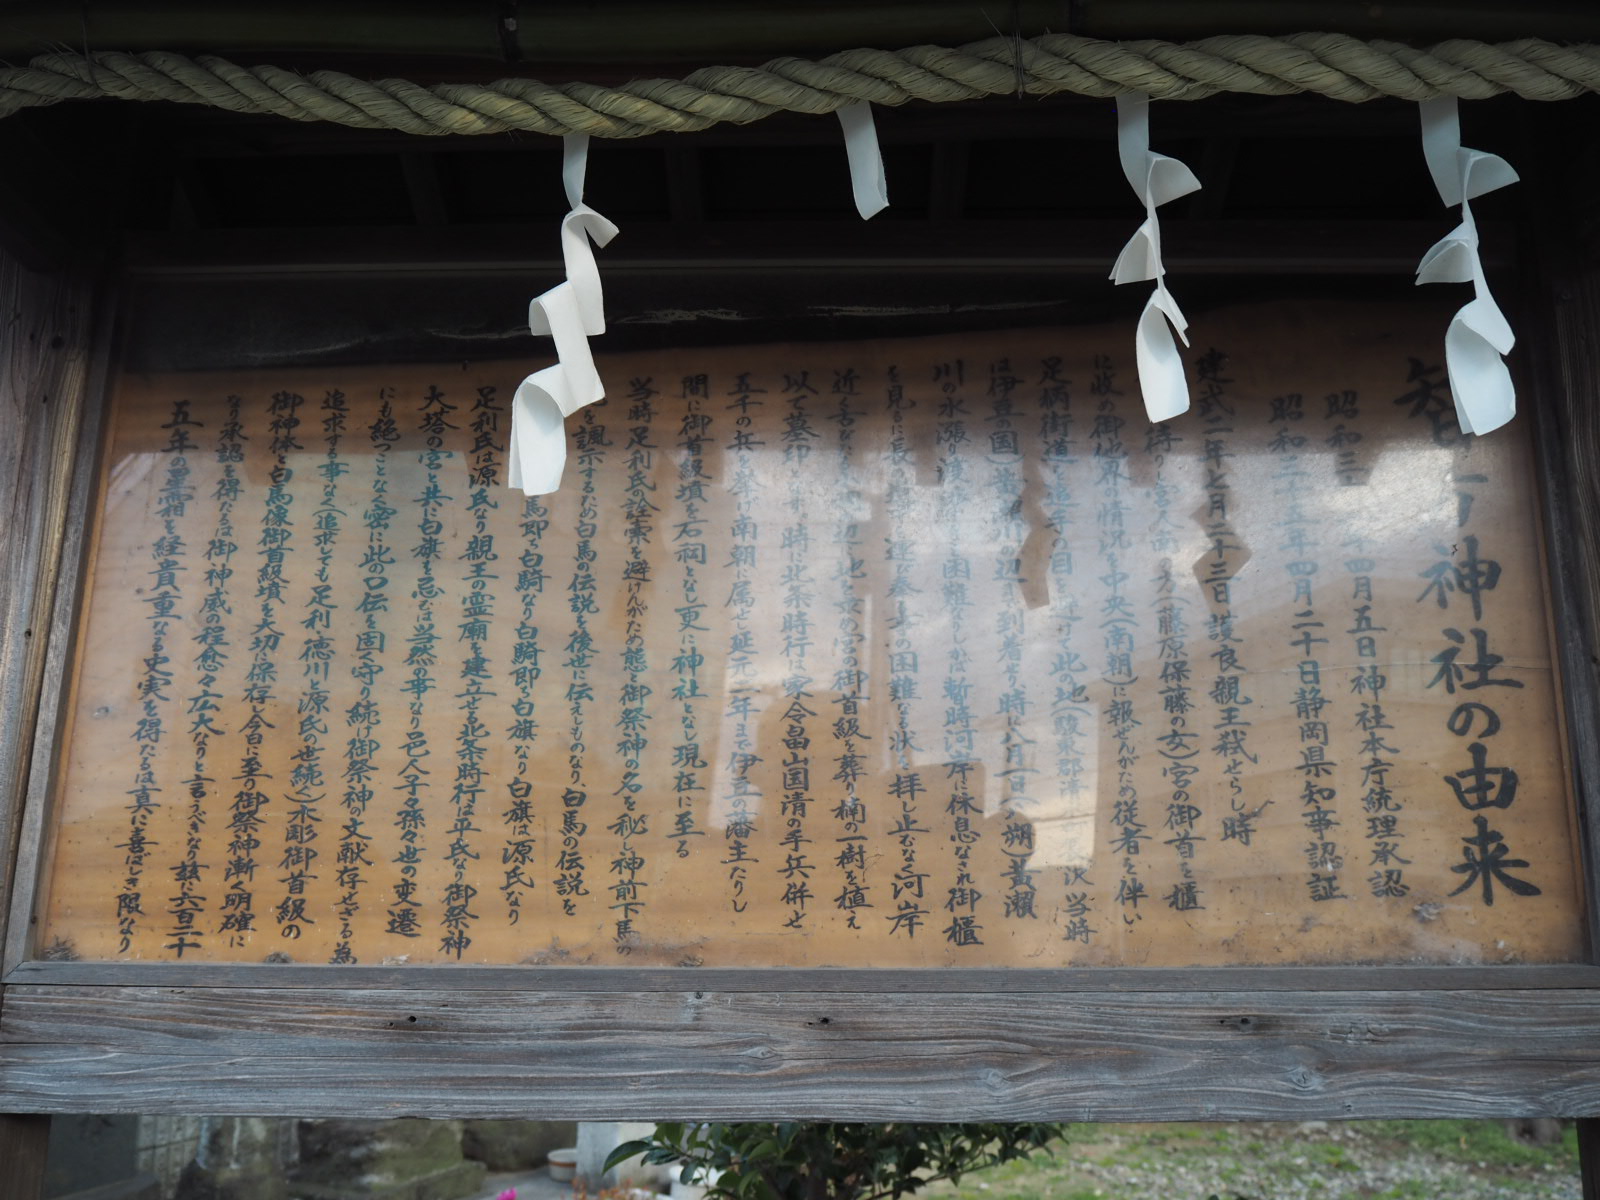 智方神社の由来
昭和三 年四月五日神社本庁統理承認
昭和三十五年四月二十日静岡県知事認証
建武二年七月二十三日護良親王弑せらし時
侍りし宮人南の方(藤原保藤の女)宮の御首を櫃
に收め御他界の情況を中央(南朝)に報ぜんがため従者を伴い
足柄街道を 此の地(駿東郡清水 当時
は伊豆の国)黄瀬川の辺まで到着せり、時に八月一日(八朔)黄瀬
川の水漲り 困難なりしかば暫時河岸に休息なされ御櫃
を見るに長の 逐び奉るの困難なる状を拝し止むなく河岸
近く 辺 地を求め宮の御首級を葬り楠の一樹を植え
以て墓印とす、時に北条時行は家令畠山国清の手兵併せ
五千の兵を 南朝に属せ延元二年まで伊豆の藩主たりし
間に御首級墳を石祠となし更に神社となし現在に至る
当時足利氏の詮索を避けんがため態と御祭神の名を秘し神前下馬の
を諷示するため白馬の伝説を後世に伝えしものなり、白馬の伝説を
馬即ち白騎なり白騎即ち白旗なり白旗は源氏なり
足利氏は源氏なり親王の霊廟を建立せる北条時行は平氏なり御祭神
大塔の宮と共に白旗を忌むは当然の事なり邑人子々孫々世の変遷
にも絶つことなく密に此の口伝を固く守り続け御祭神の文献存せざる為
追求する事なく(追求しても足利、徳川と源氏の世続く)木彫御首級の
御神体と白馬像御首級墳を大切に保存、今日に至り御祭神漸く明確に
なり承認を得たるは御神威の程愈々広大なりと言うべきなり茲に六百二十
五年の星霜を経貴重なる史実を得たるは真に喜ばしき限なり